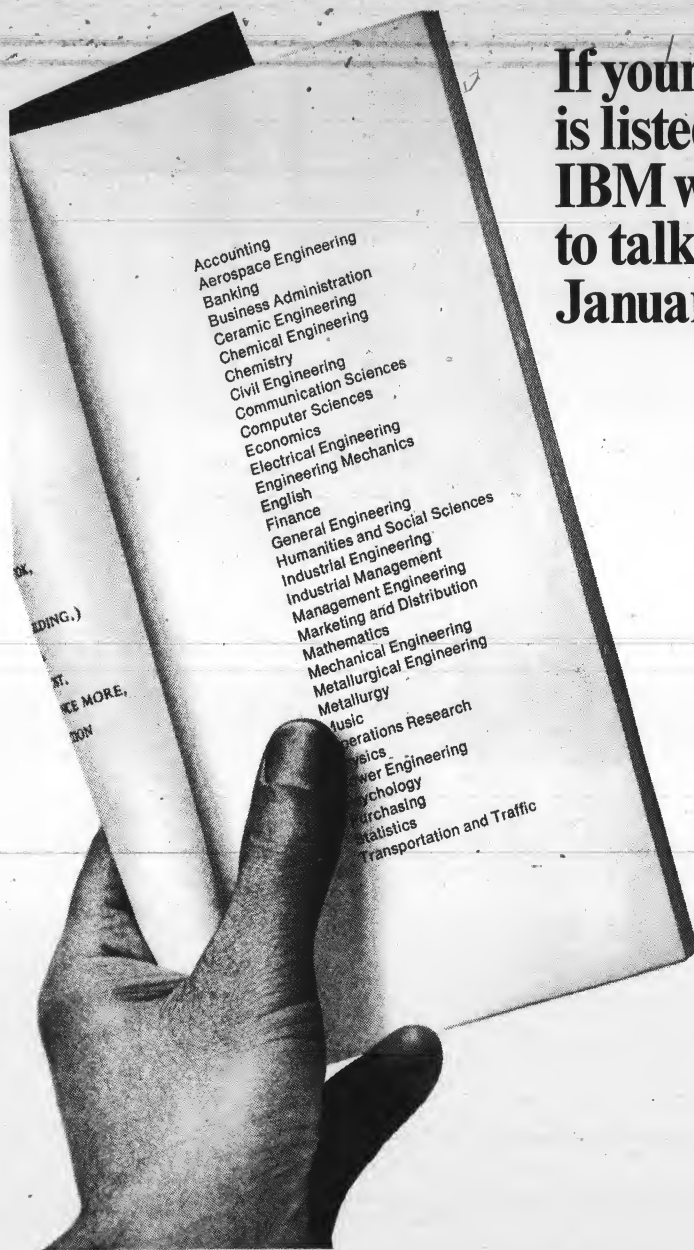 If your
is listed
IBM w
to talk
Januar
Accounting
Aerospace Engineering
Banking
Business Administration
Ceramic Engineering
Chemical Engineering
Chemistry
Civil Engineering
Communication Sciences
Computer Sciences
Economics
Electrical Engineering
Engineering Mechanics
English
Finance
General Engineering
Humanities and Social Sciences
Industrial Engineering
Industrial Management
Management Engineering
Marketing and Distribution
Mathematics
Mechanical Engineering
Metallurgical Engineering
Metallurgy
Music
perations Research
ysics
wer Engineering
ychology
Purchasing
Statistics
Transportation and Traffic
DING.)
CE MORE,